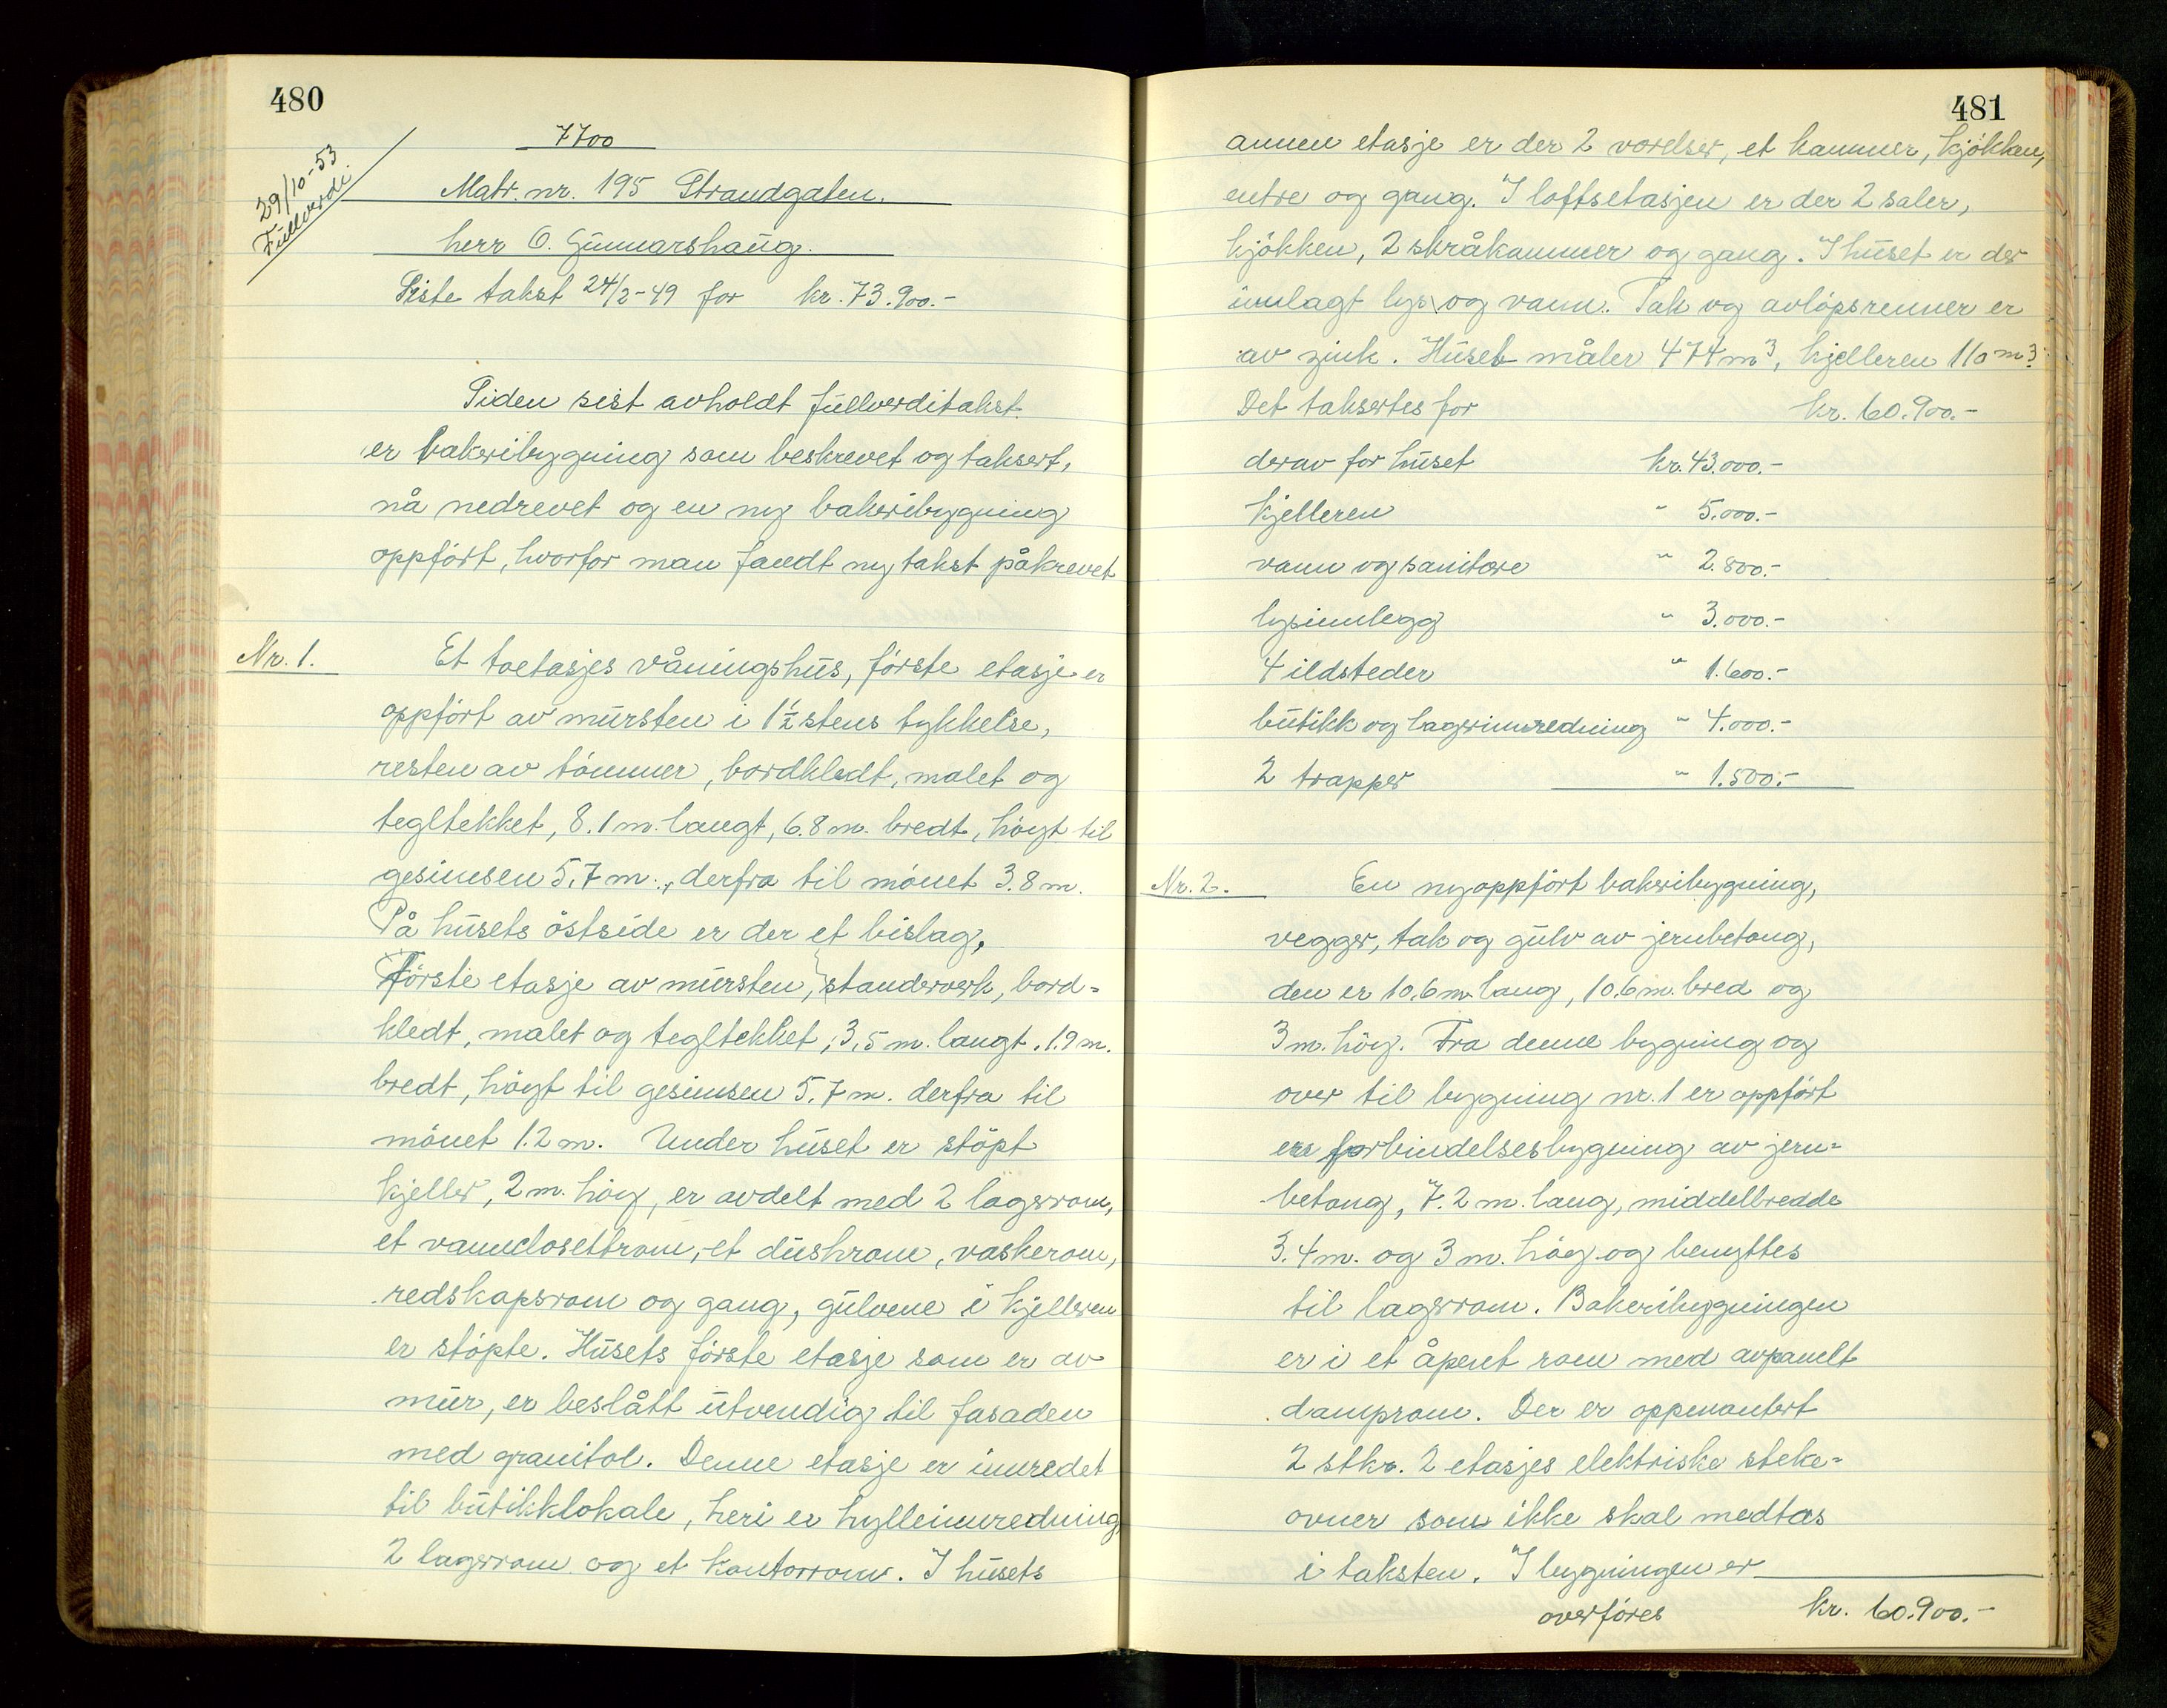 480
7700
29/10-53
Fullverdi
Matr. nr. 195 Strandgaten.
herr O. Gunnarshaug.
Siste takst 24/2-49 for kr. 73.900.-
Siden sist avholdt fullverditakst
er bakeribygning som beskrevet og taksert,
nå nedrevet og en ny bakeribygning
oppført, hvorfor man fandt ny takst påkrevet
Nr. 1. Et toetasjes våningshus, første etasje er
oppført av mursten i 1½ stens tykkelse,
resten av tømmer, bordkledt, malet og
tegltekket, 8.1 m. langt, 6.8 m. bredt, høyt til
gesimsen 5.7 m., derfra til mønet 3.8 m.
På husets østside er der et bislag,
Første etasje av mursten, standerverk, bord=
kledt, malet og tegltekket, 3,5 m. langt. 1.9 m.
bredt, høyt til gesimsen 5.7 m. derfra til
mønet 1.2 m. Under huset er støpt
kjeller, 2 m. høy, er avdelt med 2 lagerrom,
et vannclosettrom, et dushrom, vaskerom,
redskapsrom og gang, gulvene i kjelleren
er støpte. Husets første etasje som er av
mur, er beslått utvendig til fasaden
med granitol. Denne etasje er innredet
til butikklokale, heri er hylleinnredning
2 lagerrom og et kontorrom. I husets
481
annen etasje er der 2 værelser, et kammer, kjøkken,
entre og gang. I loftsetasjen er der 2 saler,
kjøkken, 2 skråkammer og gang. I huset er der
innlagt lys og vann. Tak og avløpsrenner er
av zink. Huset måler 474 m³, kjelleren 110 m³.
Det taksertes for kr. 60.900.-
derav for huset kr. 43.000.-
kjelleren " 5.000.-
vann og sanitære " 2.800.-
lysinnlegg " 3.000.-
4 ildsteder " 1.600.-
butikk og lagerinnredning " 4.000.-
2 trapper " 1.500.-
Nr. 2. En nyoppført bakeribygning,
vegger, tak og gulv av jernbetong,
den er 10.6 m. lang, 10.6 m. bred og
3 m. høy. Fra denne bygning og
over til bygning nr. 1 er oppført
en forbindelsesbygning av jern=
betong, 7.2 m. lang, middelbredde
3.4 m. og 3 m. høy og benyttes
til lagerrom. Bakeribygningen
er i et åpent rom med avpanelt
damprom. Der er oppmontert
2 stkr. 2 etasjes elektriske steke=
ovner som ikke skal medtas
i taksten. I bygningen er
overføres kr. 60.900.-